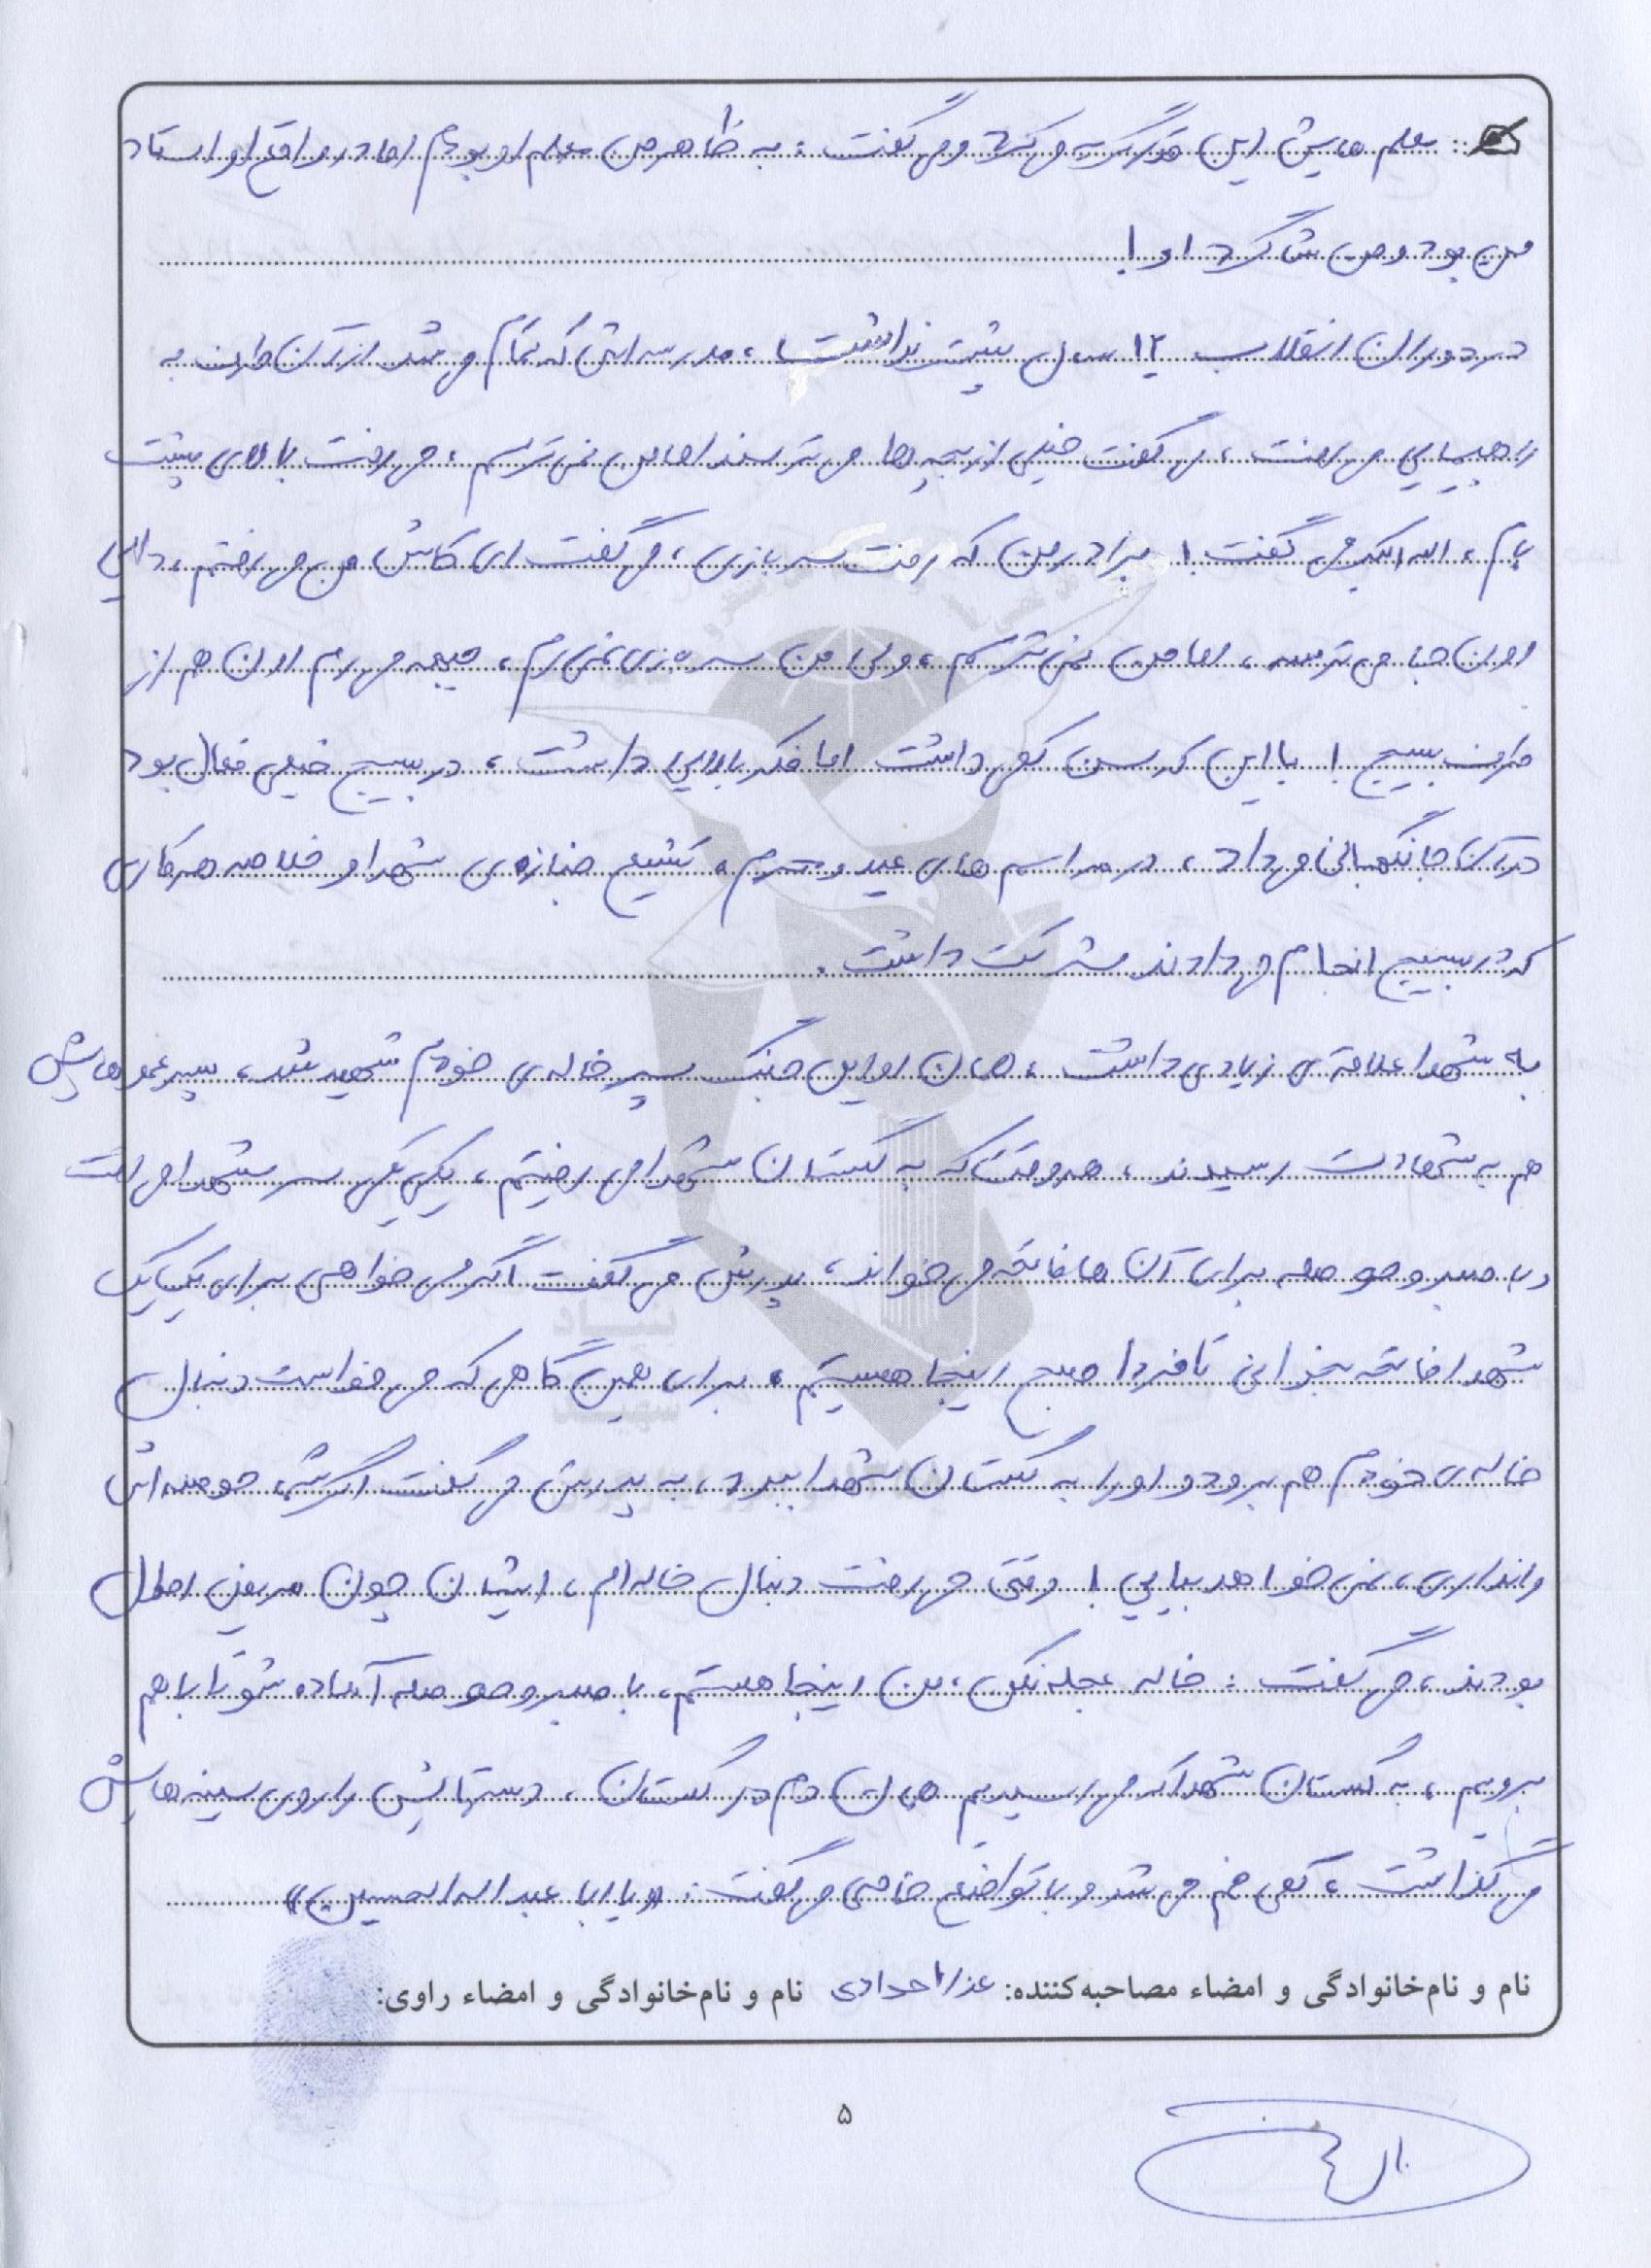 معلم هایش این قدر گریه می کرد و می گفت: به ظاهر من معلم او بودم اما در واقع او استاد
من بود و من شاگرد او!
در دوران انقلاب ۱۲ سال بیشتر نداشت، مدرسه اش که تمام می شد از آن طرف به
راهپیمایی می رفت، می گفت خیلی از بچه ها می ترسند اما من نمی ترسم، می رفت بالای پشت
بام، الله اکبر می گفت! برادر من که رفت سربازی، می گفت ای کاش من می رفتم، دایی
اون جا می ترسه، اما من نمی ترسم، ولی من سربازی نمی رم، جبهه می رم اون هم از
طرف بسیج! با این که سن کمی داشت اما فکر بالایی داشت، در بسیج خیلی فعال بود
در آن جا نگهبانی می داد، در مراسم های عید و محرم، تشییع جنازه ی شهدا و خلاصه هر کاری
که در بسیج انجام می دادند شرکت داشت.
به شهدا علاقه ی زیادی داشت، همان اوایل جنگ پسر خاله ی خودم شهید شد، پسر عموهایش
هم به شهادت رسیدند، هر وقت که به گلستان شهدا می رفتیم، یکی یکی سر شهدا می رفت
و با صبر و حوصله برای آن ها فاتحه می خواند، پدرش می گفت اگر می خواهی برای یک یک
شهدا فاتحه بخوانی تا فردا صبح اینجا هستیم، برای همین گاهی که می خواست دنبال
خاله ی خودم هم برود و او را به گلستان شهدا ببرد، به پدرش می گفت اگر شما حوصله اش
را نداری، نمی خواهد بیایی! وقتی می رفت دنبال خاله ام، ایشان چون مریض احوال
بودند، می گفت: خاله عجله نکن، من اینجا هستم، با صبر و حوصله آماده شو تا با هم
برویم، به گلستان شهدا که می رسیدیم همان دم در گلستان، دستهایش را روی سینه هایش
می گذاشت، کمی خم می شد و با تواضع خاصی می گفت: «یا ابا عبدالله الحسین»
نام و نام‌خانوادگی و امضاء مصاحبه‌کننده: عذرا حدادی نام و نام‌خانوادگی و امضاء راوی:
۵